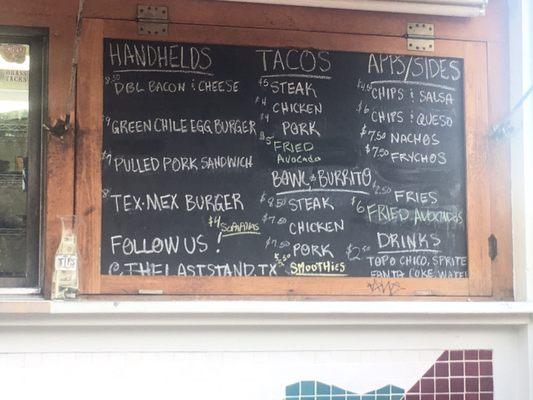 HANDHELDS
8.50 DBL BACON & CHEESE
$9 GREEN CHILE EGG BURGER
$7 PULLED PORK SANDWICH
8 TEX-MEX BURGER
$4 SOPAPILLAS
FOLLOW US!
@THELASTSTAND.TX
TACOS
$5 STEAK
$4 CHICKEN
$4 PORK
$5 FRIED
Avocado
BOWL & BURRITO
$8.50 STEAK
$7.50 CHICKEN
$7.50 PORK
$5.50 SMOOTHIES
APPS/SIDES
$4.5 CHIPS & SALSA
$6 CHIPS & QUESO
$7.50 NACHOS
$7.50 FRYCHOS
$2.50 FRIES
$6 FRIED AVOCADOS
DRINKS
$2.50 TOPO CHICO, SPRITE
FANTA COKE, WATER
TIPS